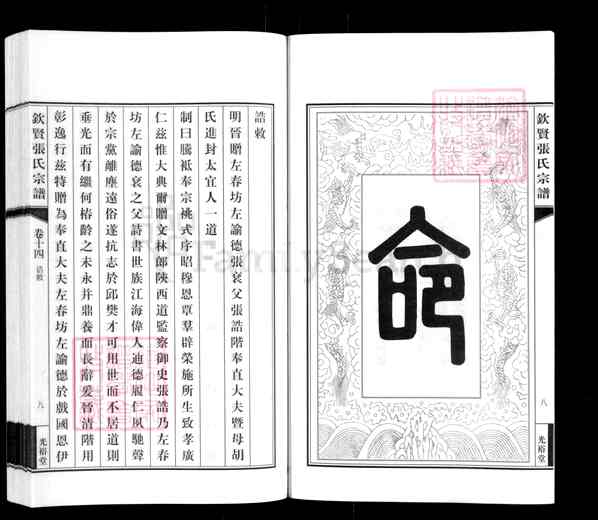 命
欽賢張氏宗譜
八
光裕堂
誥敕
明晉贈左春坊左諭德張袞父張誥階奉直大夫暨母胡
氏進封太宜人一道
制曰騰祗奉宗祧式序昭穆恩覃羣辟榮施所生致孝廣
仁茲惟大典爾贈文林郎陝西道監察御史張誥乃左春
坊左諭德袞之父詩書世族江海偉人迪德履仁夙馳聲
於宗黨離塵遠俗遂抗志於邱樊才可用世而不居道則
垂光而有繼何椿齡之未永并鼎養而長辭爰晉清階用
彰逸行茲特贈為奉直大夫左春坊左諭德於戲國恩伊
欽賢張氏宗譜
卷十四
誥敕
八
光裕堂
FamilySearch